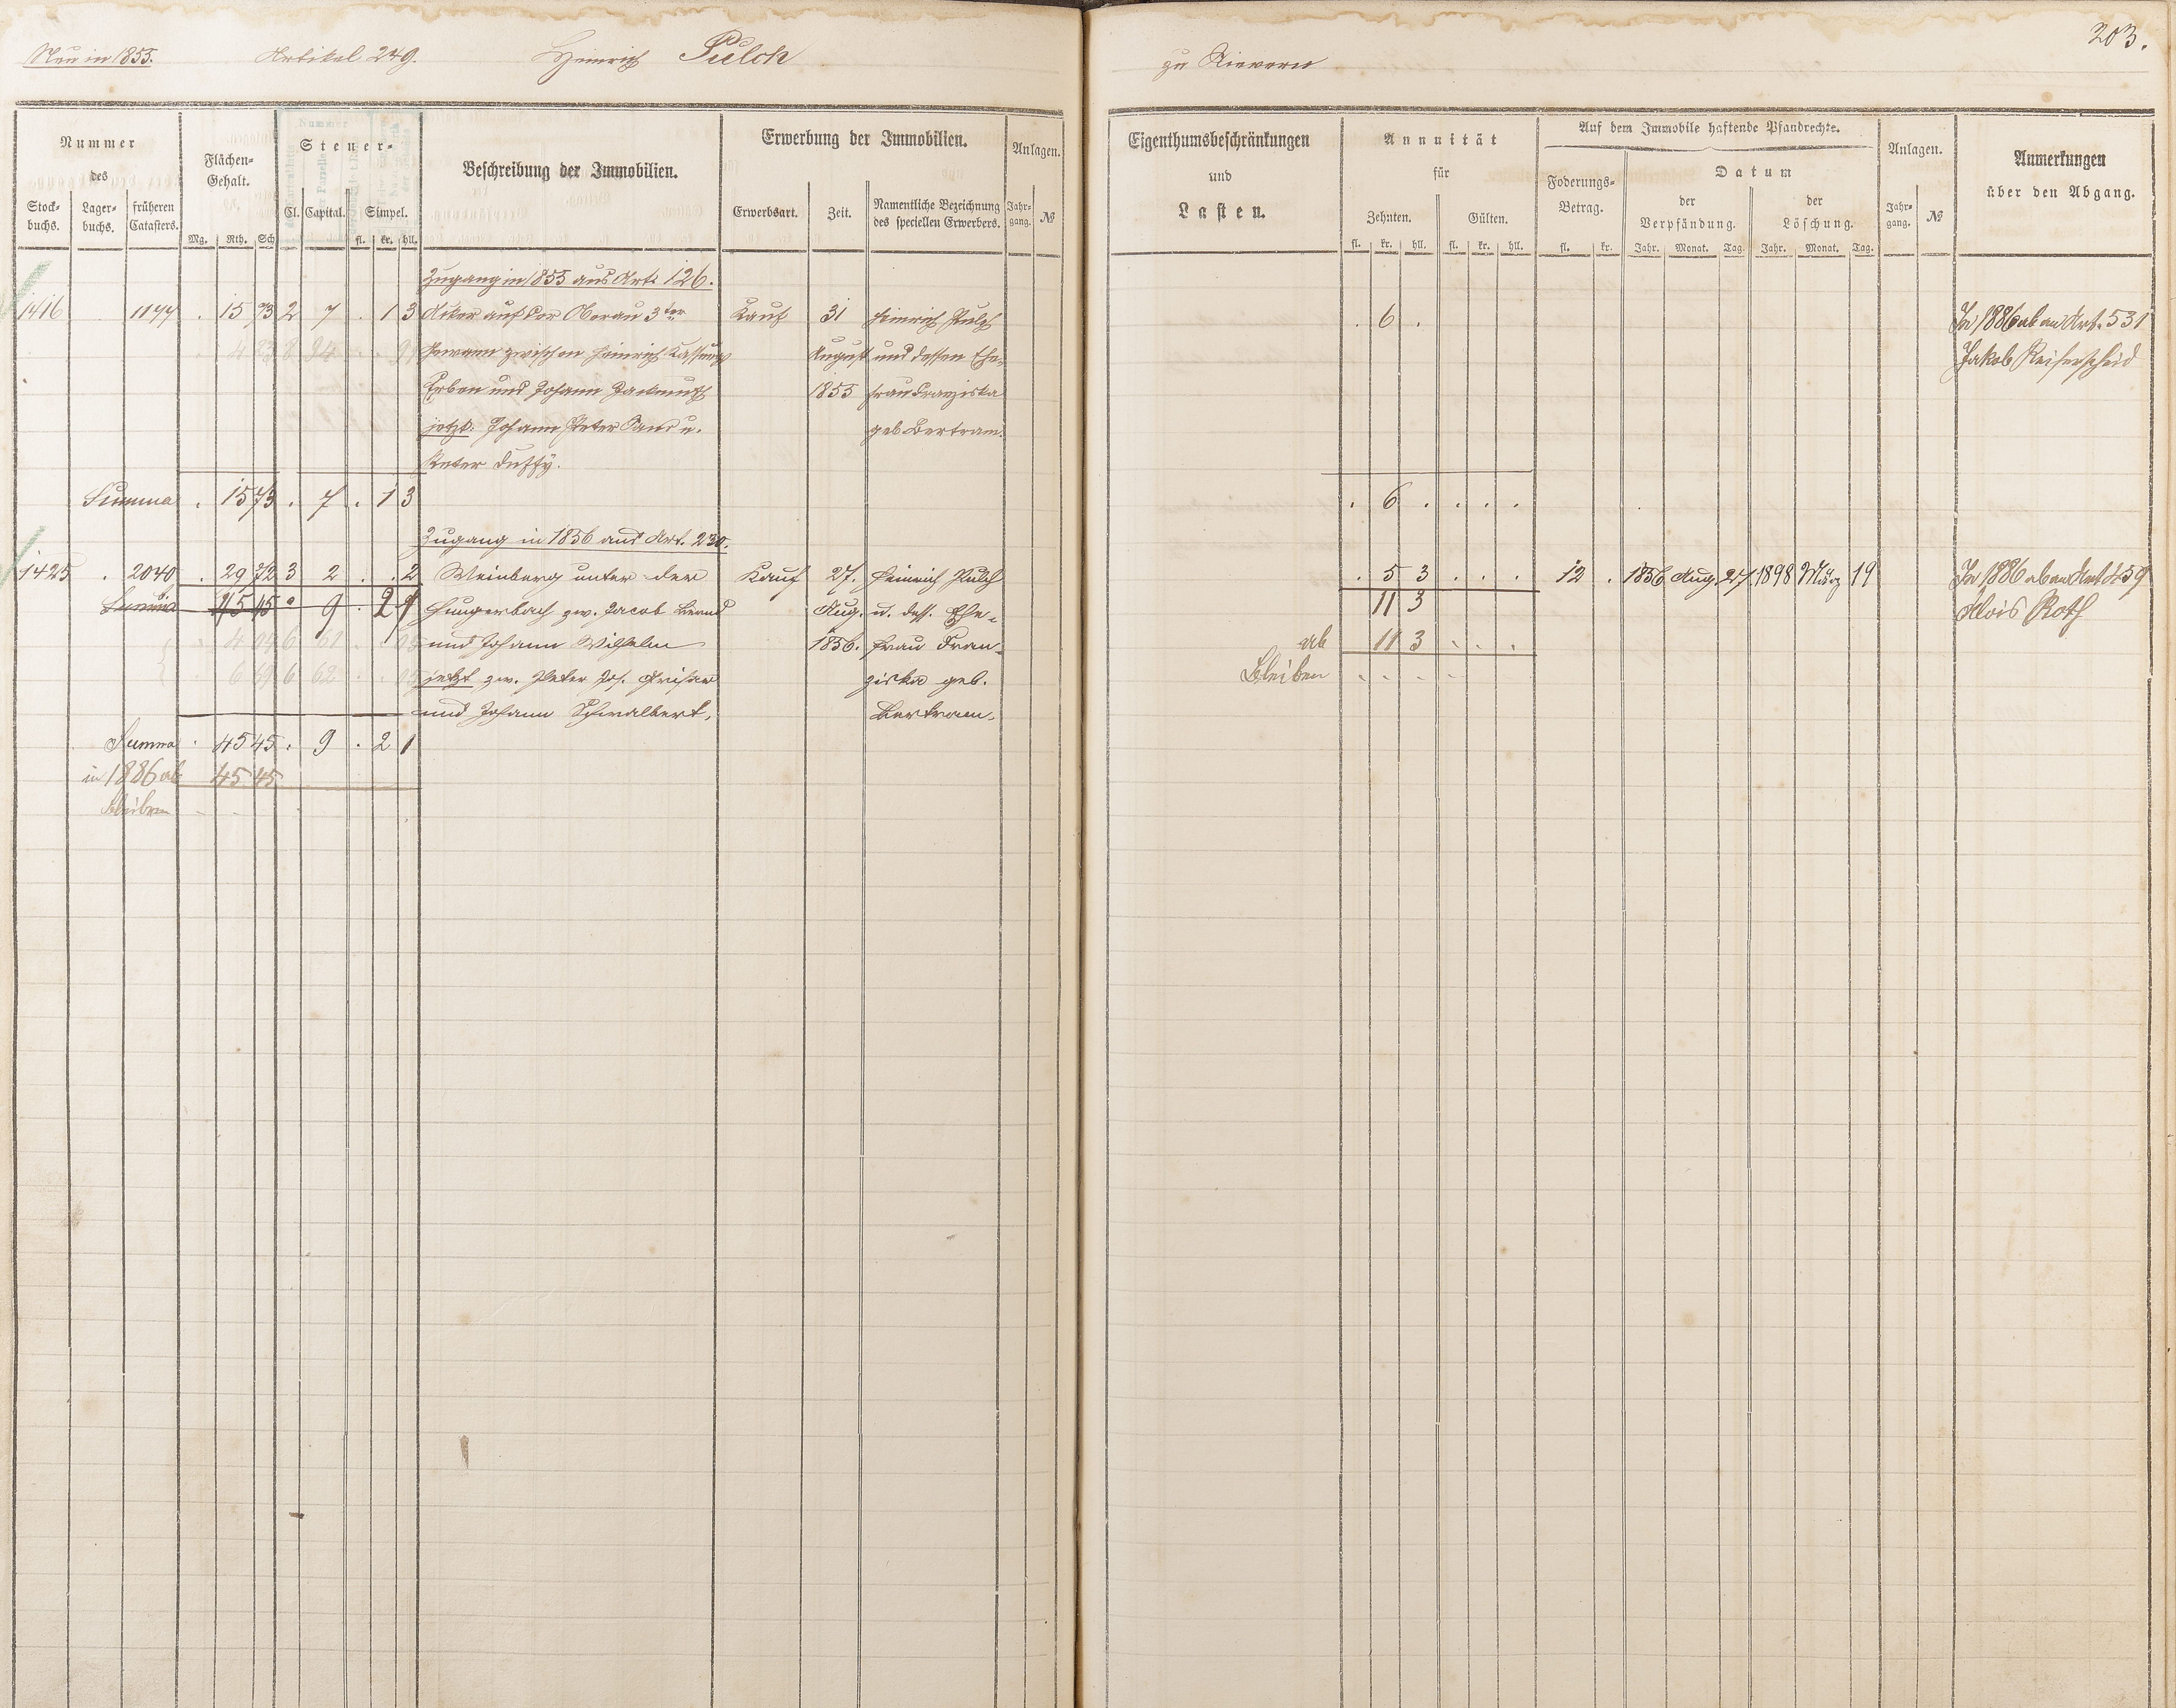 Neu in 1855. Artikel 249. Heinrich Pulch
zu Nievern 203.
Nummer
des
Stock-
buchs.
Lager-
buchs.
früheren
Catasters.
Flächen-
Gehalt.
Mg. Rth. Sch
Steuer-
Cl. Capital. Simpel.
fl. kr. hll.
Beschreibung der Immobilien.
Erwerbung der Immobilien.
Erwerbsart. Zeit. Namentliche Bezeichnung
des speciellen Erwerbers.
Anlagen.
Jahr-
gang. №
Eigenthumsbeschränkungen
und
Lasten.
Annuität
für
Zehnten. Gülten.
fl. kr. hll. fl. kr. hll.
Auf dem Immobile haftende Pfandrechte.
Foderungs-
Betrag.
fl. kr.
Datum
der
Verpfändung.
der
Löschung.
Jahr. Monat. Tag. Jahr. Monat. Tag.
Anlagen.
Jahr-
gang. №
Anmerkungen
über den Abgang.
Zugang in 1855 aus Art. 126.
1416 1177 . 15 73 2 7 . 1 3 Acker auf der Oberau 3ter Kauf 31 Heinrich Pulch . 6 . In 1886 ab an Art. 531
Gewann zwischen Heinrich August und dessen Ehe- Jakob Reiferscheid
Erben und Johann 1855 frau Franziska
jetzt: Johann Peter u. geb. Bertram.
Peter Duffy.
Summa . 15 73 . 7 . 1 3 . 6 . . . .
Zugang in 1856 aus Art. 230.
1425 . 2040 . 29 72 3 2 . . 2 Weinberg unter der Kauf 27. Heinrich Pulch . 5 3 . . . 12 . 1856 Aug. 27. 1898 März 19 In 1886 ab an Art 459
Summa 45 45 . 9 . 2 1 Hungerbach zw. Jacob Brand Aug. u. dess. Ehe- 11 3 Alois Roth
und Johann Wilhelm 1856. frau Fran- ab 11 3 . . .
jetzt zw. Peter Jos. Grisar ziska geb. Bleiben . . . .
und Johann Schwalbert. Bertram.
Summa . 45 45 . 9 . 2 1
in 1886 ab 45 45
bleiben . .